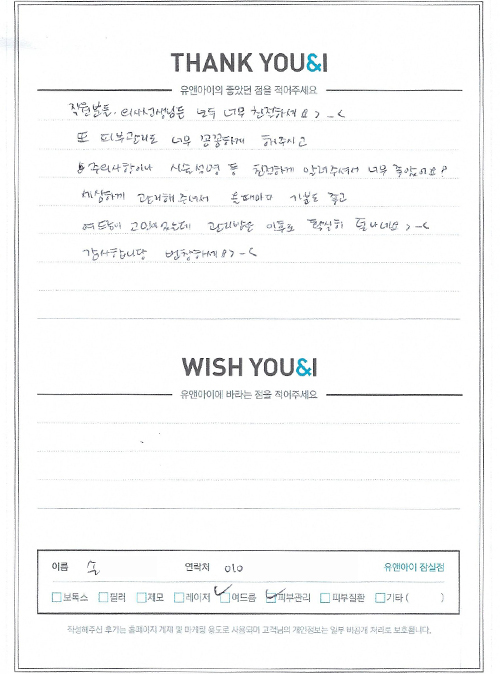 THANK YOU&I
유앤아이의 좋았던 점을 적어주세요
직원분들, 의사선생님들 모두 너무 친절하세요>_<
또 피부관리도 너무 꼼꼼하게 해주시고
주의사항이나 시술설명 등 친절하게 알려주셔서 너무 좋았어요?
세심하게 관리해주셔서 올때마다 기분도 좋고
여드름이 고민이었는데 관리받은 이후로 확실히 효과네요>_<
감사합니당 번창하세요>_<
WISH YOU&I
유앤아이에 바라는 점을 적어주세요
이름 손 연락처 010 유앤아이 잠실점
보톡스 필러 제모 레이저 여드름 피부관리 피부질환 기타 ( )
작성해주신 후기는 홈페이지 게재 및 마케팅 용도로 사용되며 고객님의 개인정보는 일부 비공개 처리로 보호됩니다.